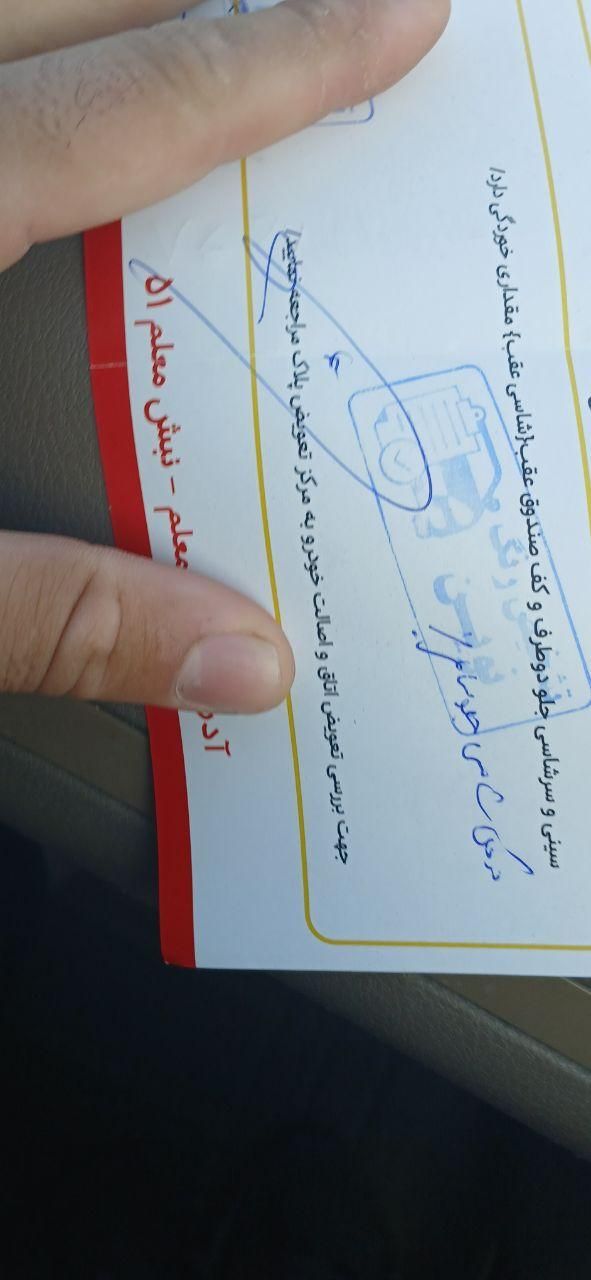 سینی و سرشاسی جلو دوطرف و کف صندوق عقب{شاسی عقب} مقداری خوردگی دارد/
جلو سالم
جهت بررسی تعویض اتاق و اصالت خودرو به مرکز تعویض پلاک مراجعه نمایید/
آدر معلم - نبش معلم ۵۱